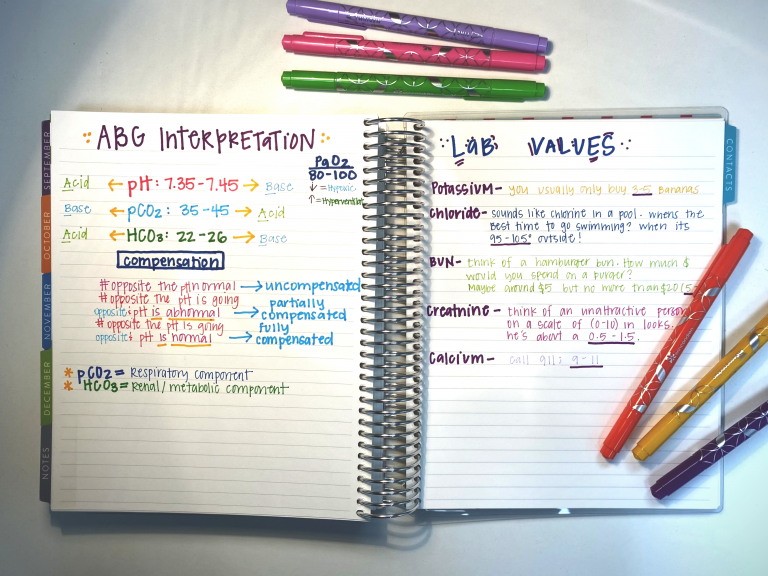 SEPTEMBER
OCTOBER
NOVEMBER
DECEMBER
NOTES
ABG INTERPRETATION
PaO2
80-100
↓ = Hypoxic
↑ = Hyperventilat
Acid ← pH: 7.35-7.45 → Base
Base ← pCO2: 35-45 → Acid
Acid ← HCO3: 22-26 → Base
compensation
#opposite the pH normal → uncompensated
#opposite the pH is going
opposite & pH is abnormal → partially compensated
#opposite the pH is going
opposite & pH is normal → fully compensated
* pCO2 = Respiratory component
* HCO3 = Renal/metabolic component
LAB VALUES
Potassium - you usually only buy 3-5 Bananas
Chloride - sounds like chlorine in a pool. whens the
Best time to go swimming? when its
95-105° outside!
BUN - think of a hamburger bun. How much $
would you spend on a Burger?
Maybe around $5 but no more than $20 (5
Creatnine - think of an unattractive person
on a scale of (0-10) in looks,
he's about a 0.5-1.5.
Calcium - call 911: 9-11
CONTACTS